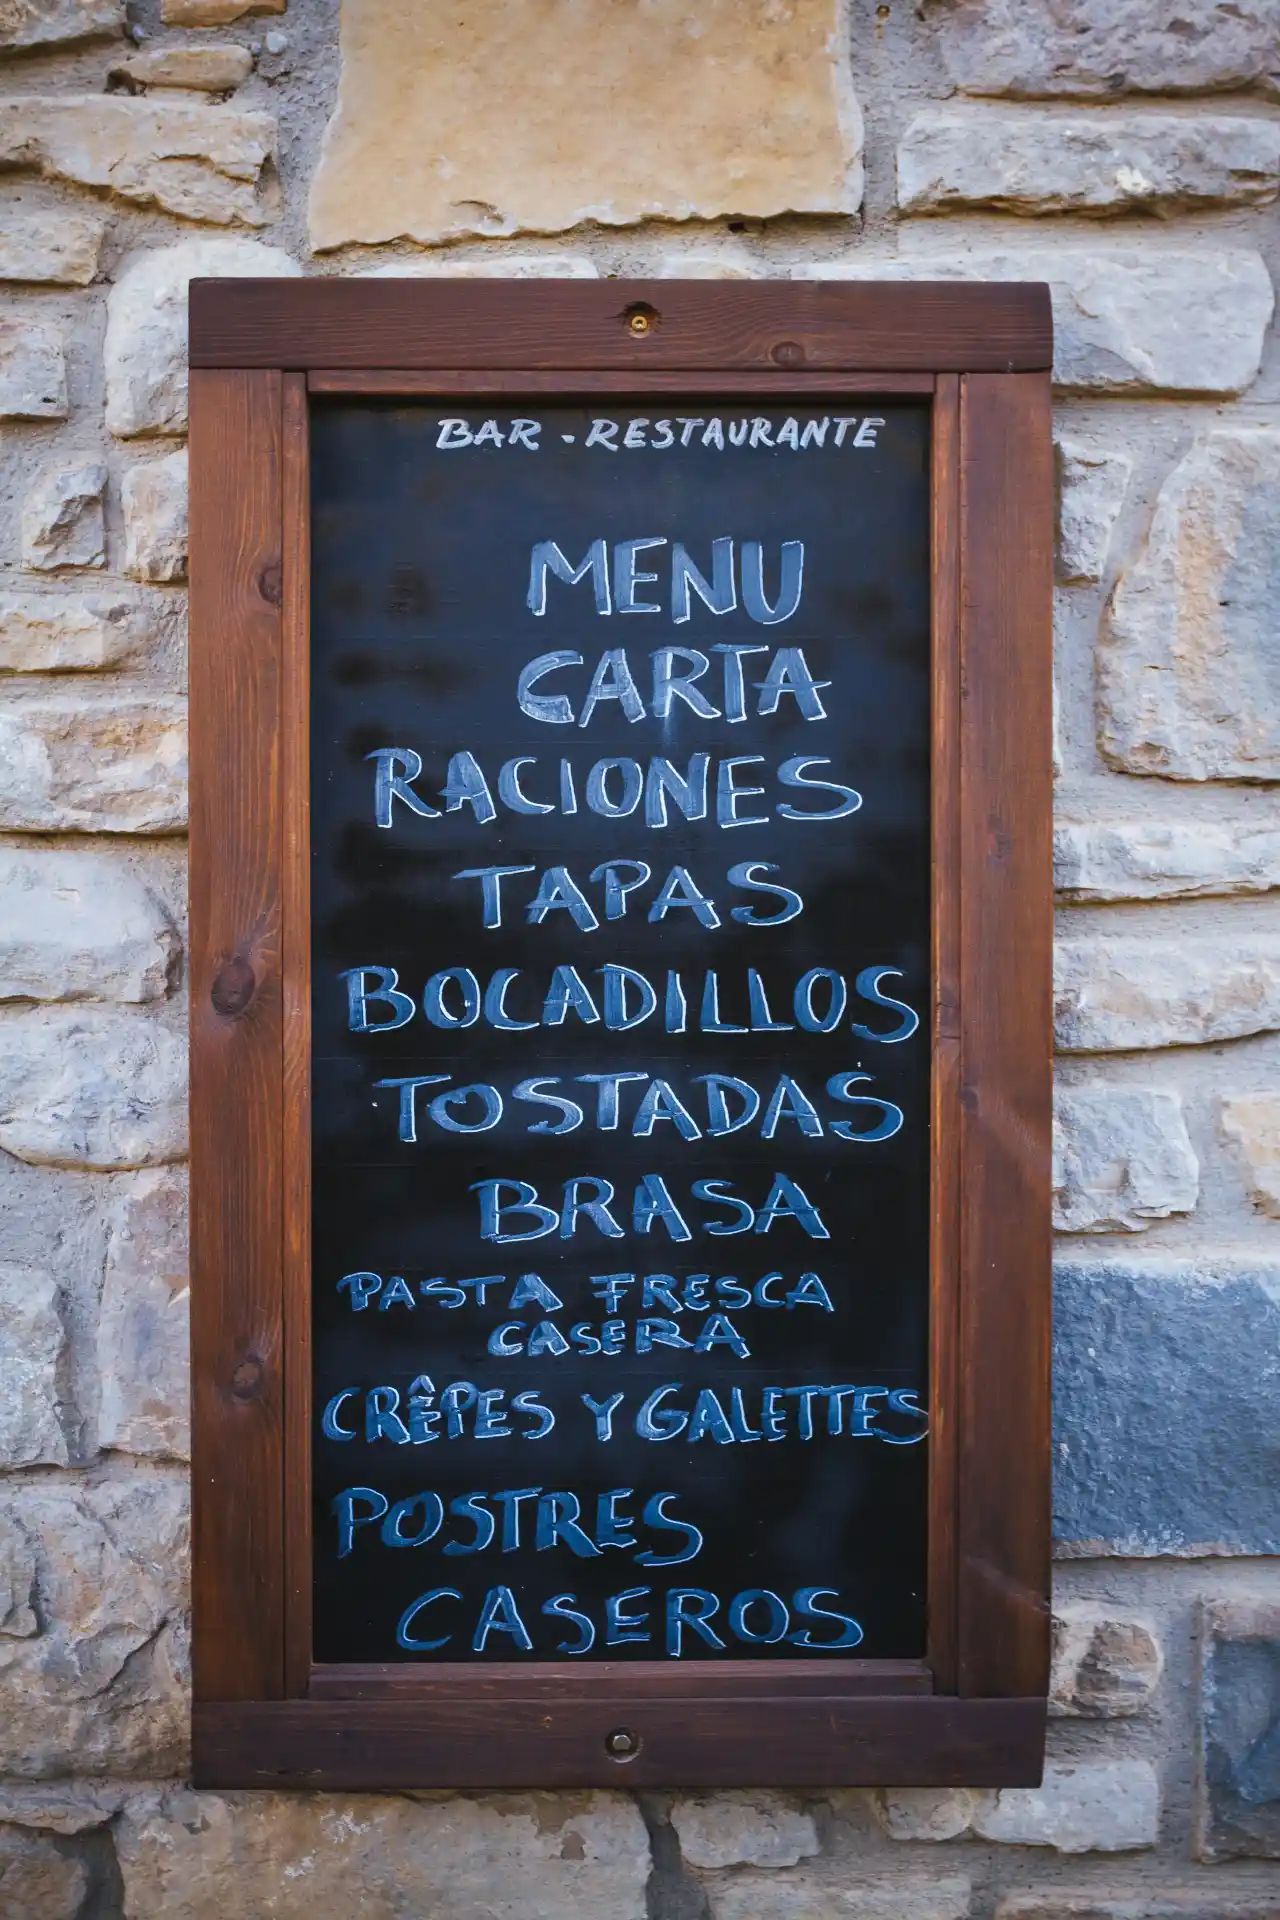 BAR - RESTAURANTE
MENU
CARTA
RACIONES
TAPAS
BOCADILLOS
TOSTADAS
BRASA
PASTA FRESCA
CASERA
CRÊPES Y GALETTES
POSTRES
CASEROS